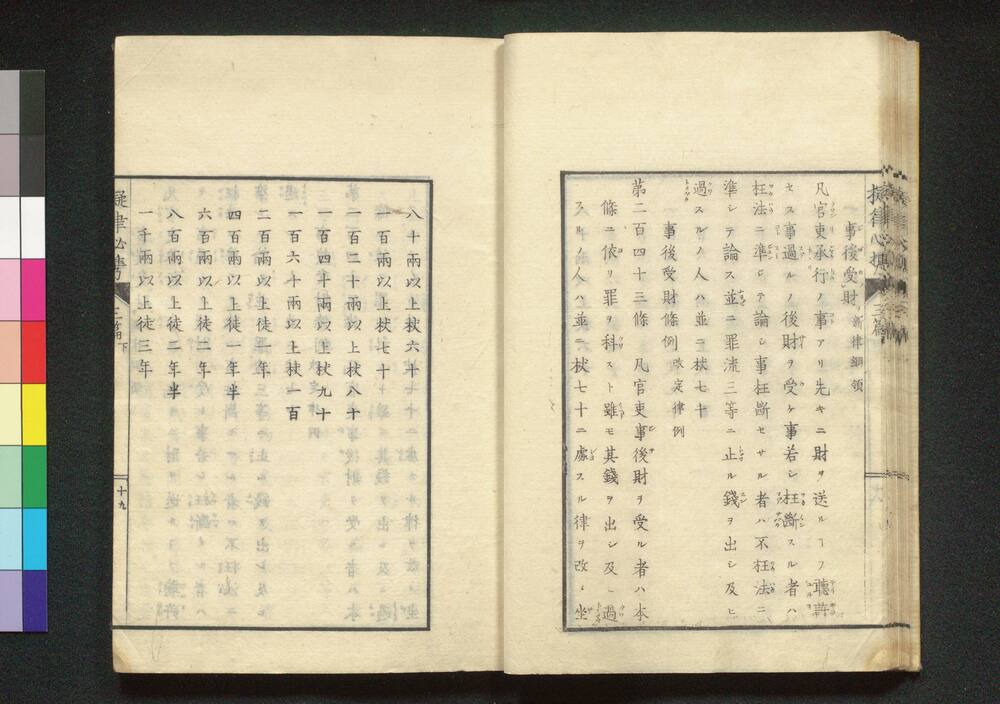 擬律必携 三篇
事後受財 新律綱領
凡官吏承行ノ事アリ先キニ財ヲ送ルヿヲ聽許
セス事過ルノ後財ヲ受ケ事若シ枉斷スル者ハ
枉法ニ準シテ論シ事枉斷セサル者ハ不枉法ニ
準シテ論ス並ニ罪流三等ニ止ル錢ヲ出シ及ヒ
過スルノ人ハ並ニ杖七十
事後受財條例 改定律例
第二百四十三條 凡官吏事後財ヲ受ル者ハ本
條ニ依リ罪ヲ科スト雖モ其錢ヲ出シ及ヒ過
スルノ人ハ並ニ杖七十ニ處スル律ヲ改メ坐
八十兩以上杖六十
一百兩以上杖七十
一百二十兩以上杖八十
一百四十兩以上杖九十
一百六十兩以上杖一百
二百兩以上徒一年
四百兩以上徒一年半
六百兩以上徒二年
八百兩以上徒二年半
一千兩以上徒三年
擬律必携 三篇下
十九